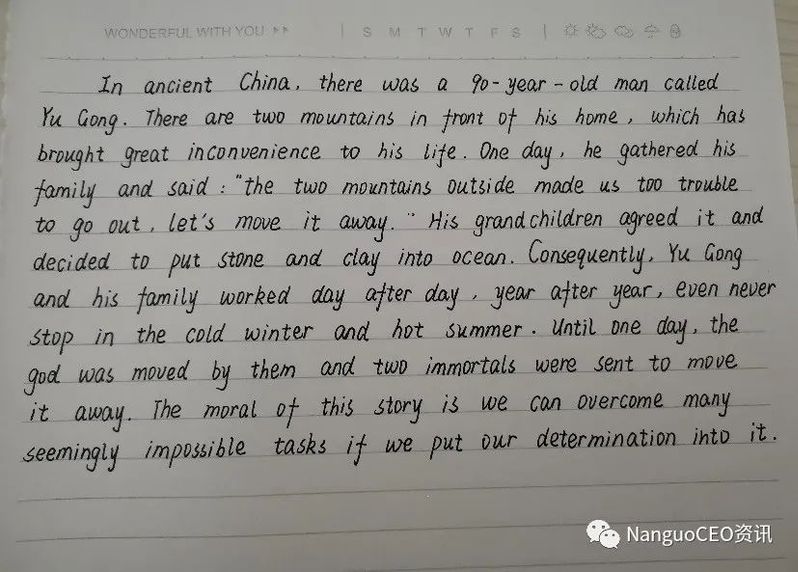 WONDERFUL WITH YOU | S M T W T F S |
In ancient China, there was a 90-year-old man called
Yu Gong. There are two mountains in front of his home, which has
brought great inconvenience to his life. One day, he gathered his
family and said : "the two mountains outside made us too trouble
to go out, let's move it away." His grandchildren agreed it and
decided to put stone and clay into ocean. Consequently, Yu Gong
and his family worked day after day, year after year, even never
stop in the cold winter and hot summer. Until one day, the
god was moved by them and two immortals were sent to move
it away. The moral of this story is we can overcome many
seemingly impossible tasks if we put our determination into it.
NanguoCEO资讯